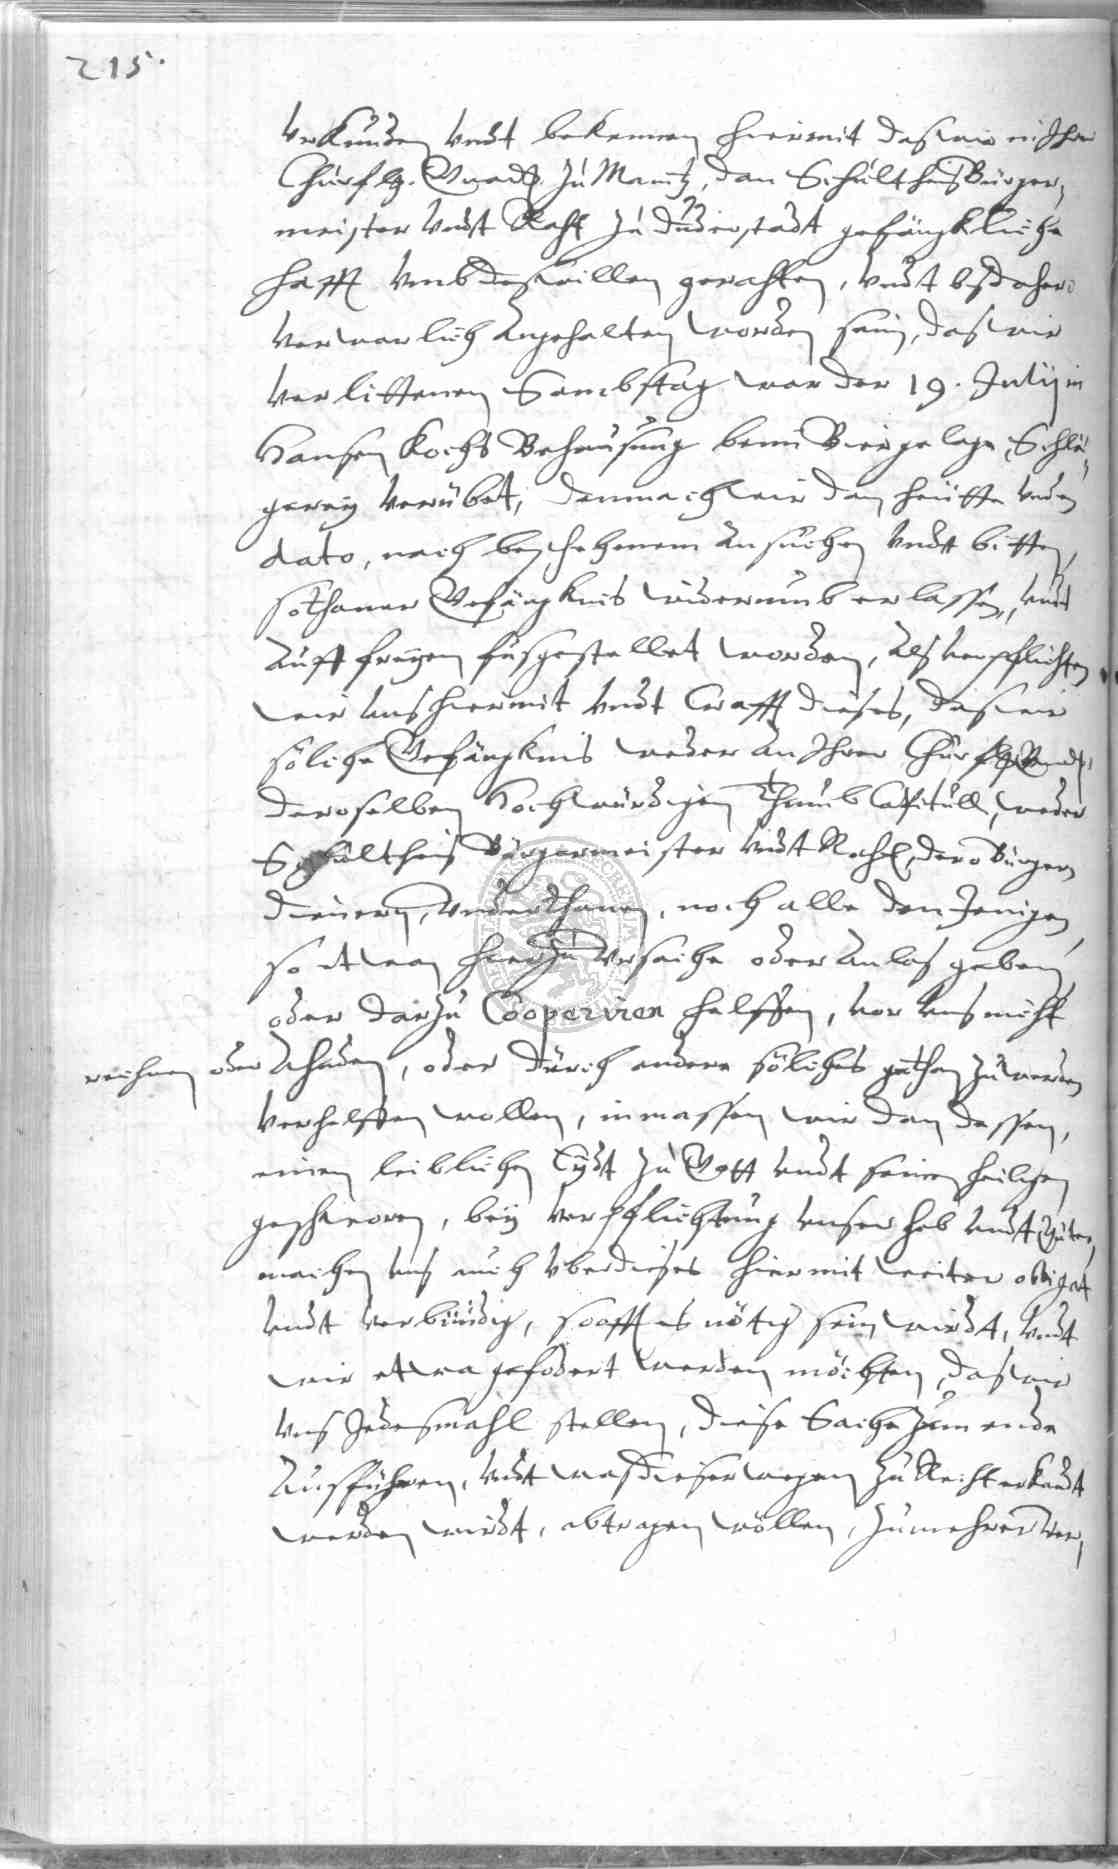 215.
Urkunden undt bekennen hiermit das wir in Ihrer
Churfstl. Gnad. zu Maintz, dan Schultheiß Bürger,
meister undt Raht zu Duderstadt gefängkliche
hafft umb deswillen gerahten, undt bißdahero
verwarlich angehalten worden sein, das wir
verlittenen Sambstag war der 19. Julij in
Hansen Kochs Behausung beim Biergelage Schlä,
gerey verübet, demnach wir dan heutte unden
dato, nach beschehenem ansuchen undt bitten,
sothaner Gefängknis widerumb erlassen, undt
auff freyen fus gestellet worden, Als verpflichten
wir uns hiermit undt Crafft dieses, das wir
söliche Gefängknis weder an Ihrer Churfstl. Gnad.
deroselben Hochwürdigen Thumb Capitull, weder
Schultheis Bürgermeister undt Raht, dero Bürgern
Dienern, Underthanen, noch alle den Jenigen
so etwan hierzu Ursache oder anlas geben,
oder darzu Cooperiren helffen, vor uns nicht
rechnen oder ahnden, oder durch andere söliches gethan zu werden
verhelffen wollen, inmassen wir dan dessen,
einen leiblichen Eydt zu Gott undt seinen heiligen
geschworen, bey verpflichtung unser hab undt Güter,
machen uns auch überdieses hiermit weiter obligat
undt verbündig, so offt es nötig sein wirdt, undt
wir etwa gefodert werden möchten, das wir
uns Jedesmahl stellen, diese Sache zum ende
ausführen, undt was dieserwegen zu Recht erkandt
werden wirdt, abtragen wöllen, zu mehrer ver,